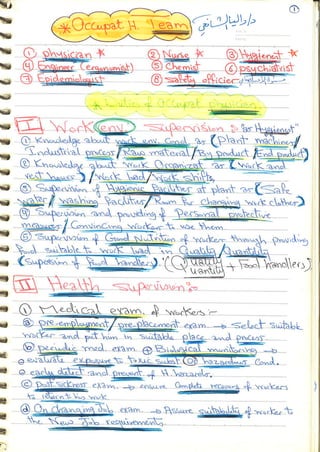 ①
* Occupat H. Team
① physician * ② Nurse * ③ Hygienist *
④ Engineer (ergonomist) ⑤ Chemist ⑥ psychiatrist
⑦ Epidemiologist ⑧ Safety officier
Duties of Occupat physician
I Work env. Supervision as "Hygienist"
① Knowledge about work env. Cond. as (Plant machines /
Industrial process / Raw material / By product / End product)
② Knowledge about Work as (Work and
rest hours) / Work load / Work shifts
③ Supervision of Hygienic facilities at plant as (Safe
water / washing facilities / Room for changing work clothes)
④ Supervision and providing of Personal protective
measures / Convincing worker to use them
⑤ Supervision of Good Nutrition of worker through providing
food suitable to work load in Quality / Quantity
(Supervision of food handlers) (Quality Quantity + food handlers)
II Health Supervision
① Medical exam. of workers :-
ⓐ pre-employment / pre-placement exam → Select suitable
worker and put him in suitable place and process
ⓑ periodic med. exam ⊕ Biological monitoring →
evaluate exposure to toxic subst ⊕ hazardous Cond.
early detect and prevent of H. hazards.
ⓒ Post sickness exam → ensure Complete recovery of workers
to return his work
ⓓ On changing Job exam → Assure suitability of worker to
the New Job requirements